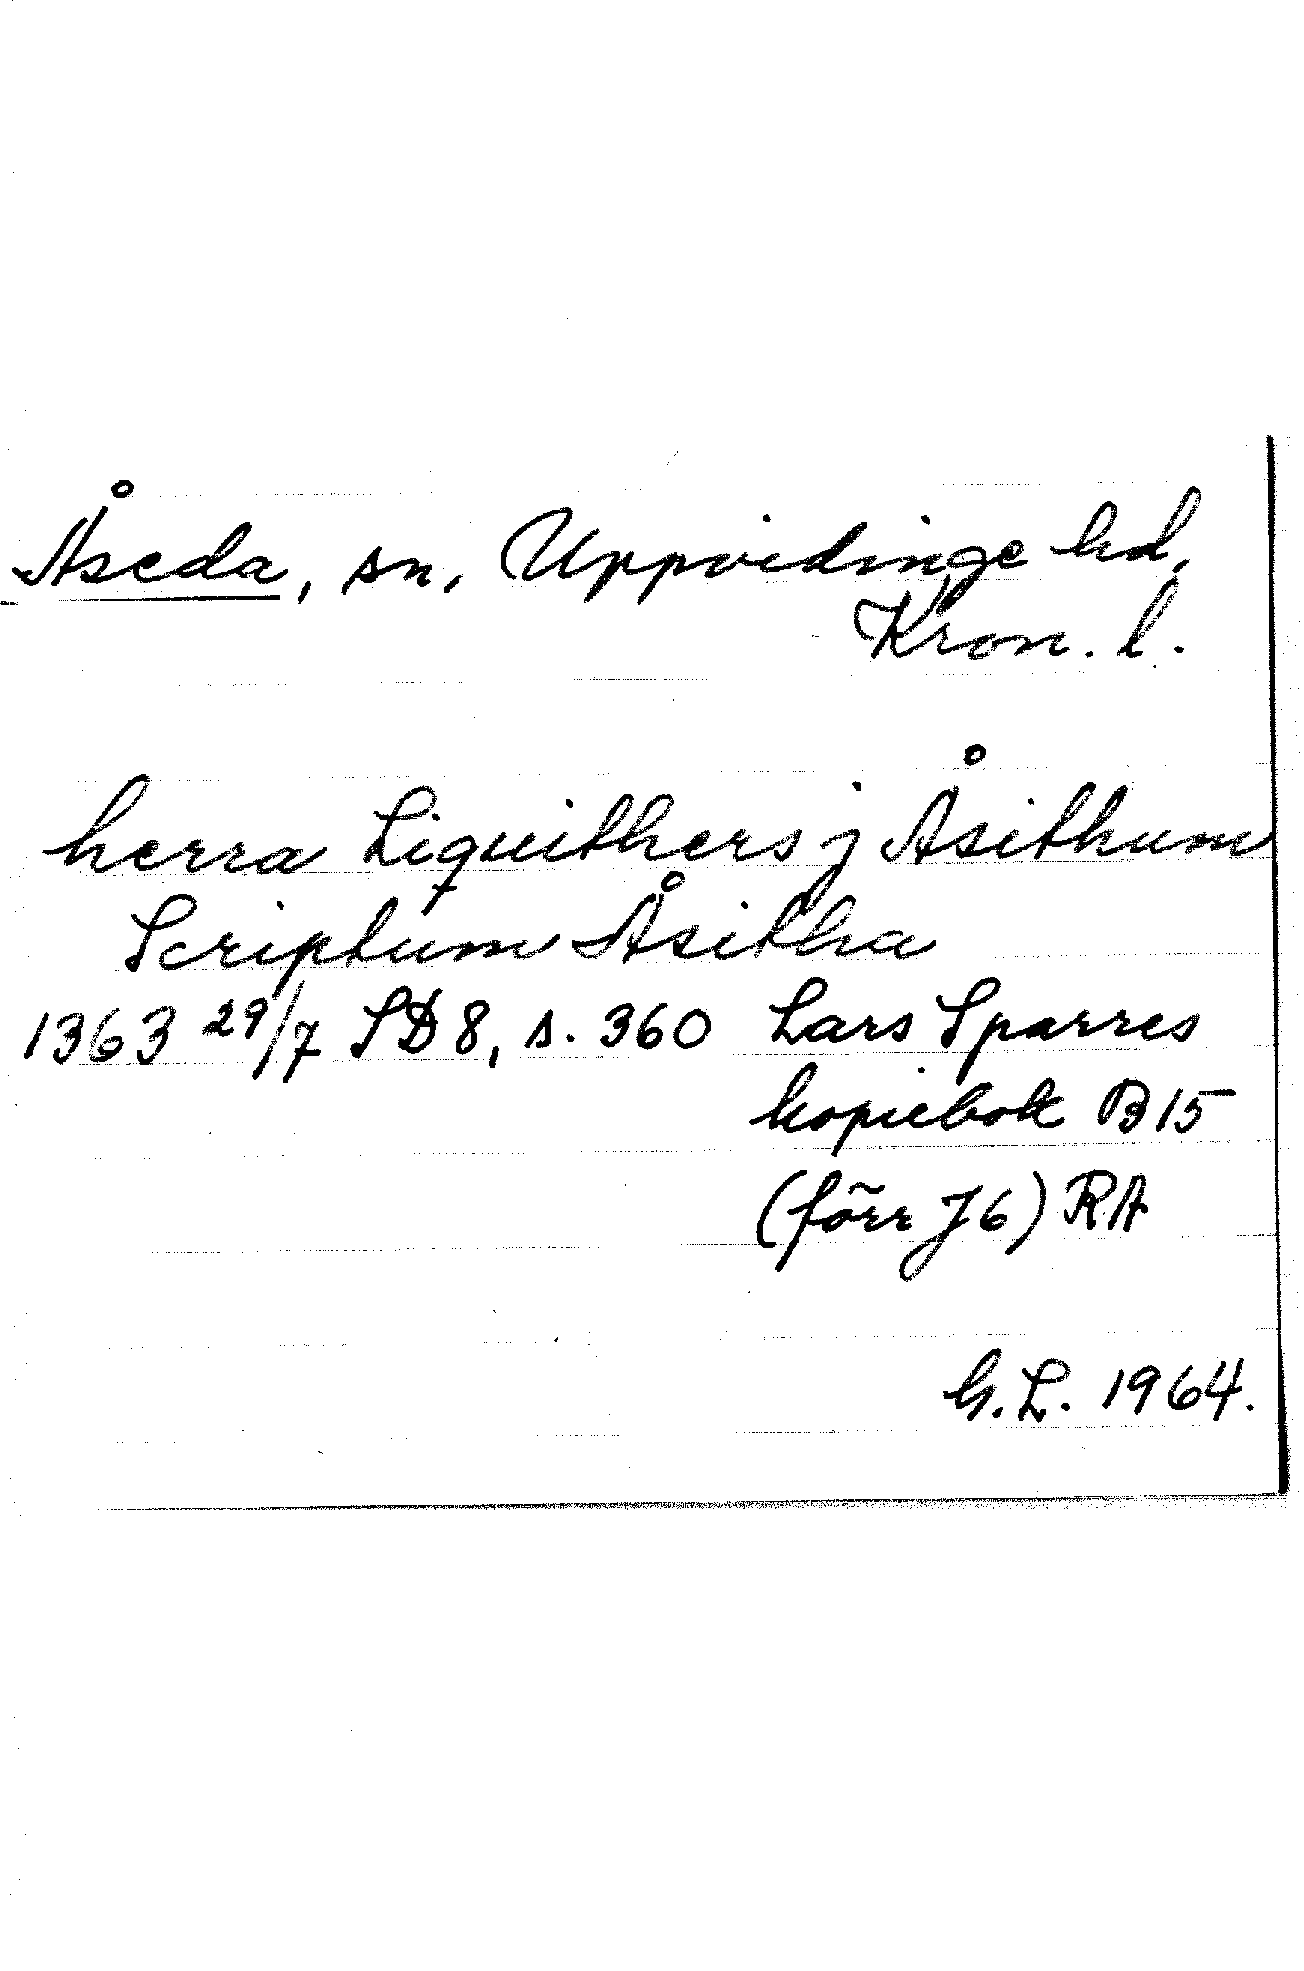 Åseda, sn, Uppvidinge hd,
Kron. l.
herra Liquithers j Åsithum
Scriptum Åsitha
1363 29/7 SD 8, s. 360 Lars Sparres
kopiebok B 15
(förr J 6) RA
G. L. 1964.